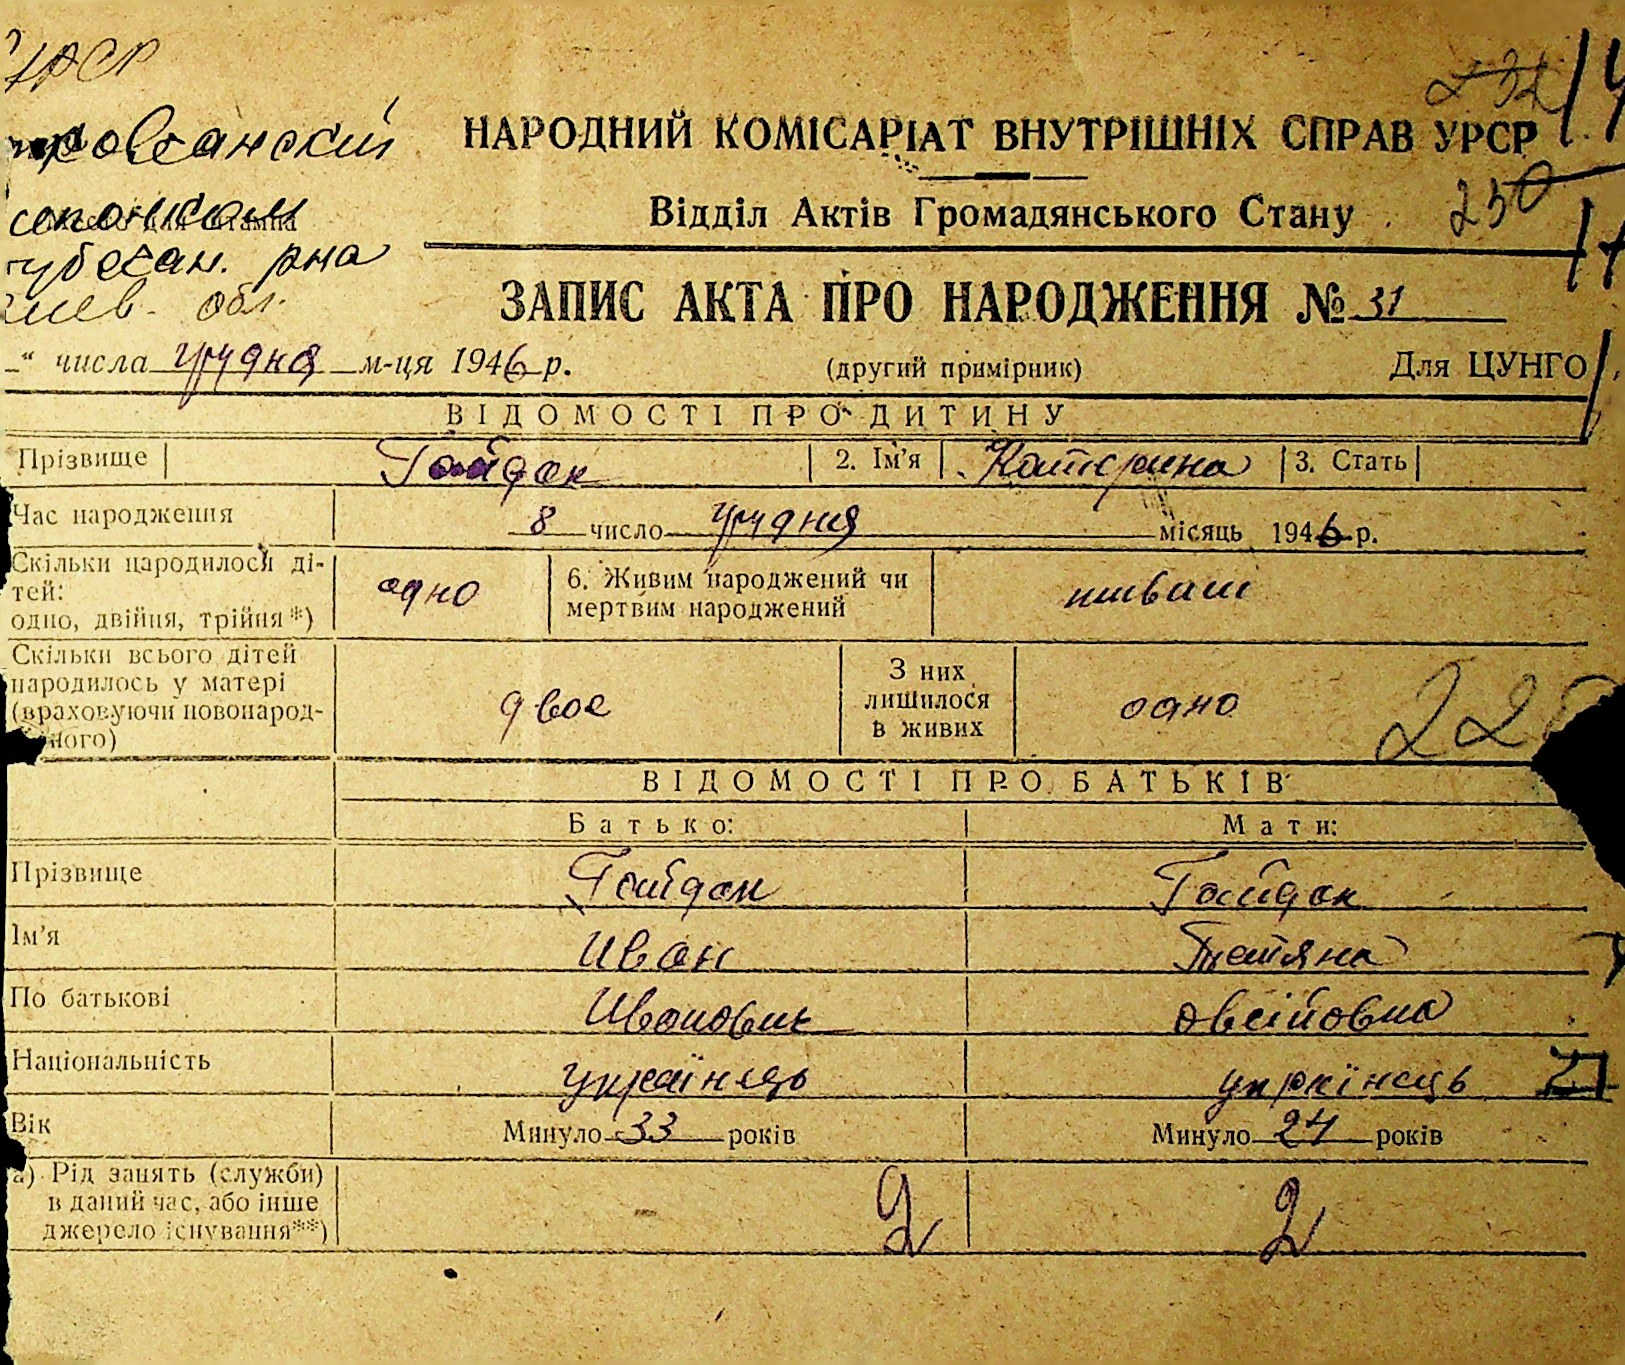 УРСР
НАРОДНИЙ КОМІСАРІАТ ВНУТРІШНІХ СПРАВ УРСР
250
Відділ Актів Громадянського Стану
рна
обл.
ЗАПИС АКТА ПРО НАРОДЖЕННЯ № 31
" числа грудня м-ця 1946 р. (другий примірник) Для ЦУНГО
ВІДОМОСТІ ПРО ДИТИНУ
Прізвище Гайдак 2. Ім'я Катерина 3. Стать
Час народження 8 число грудня місяць 1946 р.
Скільки народилося ді-
тей:
одно, двійня, трійня*) одно 6. Живим народжений чи
мертвим народжений
Скільки всього дітей
народилось у матері
(враховуючи новонарод-
ного) двое З них
лишилося
в живих одно
ВІДОМОСТІ ПРО БАТЬКІВ
Батько: Мати:
Прізвище Гайдак Гайдак
Ім'я Иван Татяна
По батькові Иванович Овсійовна
Національність українець укркінець
Вік Минуло 33 років Минуло 24 років
а) Рід занять (служби)
в даний час, або інше
джерело існування**) 2 2